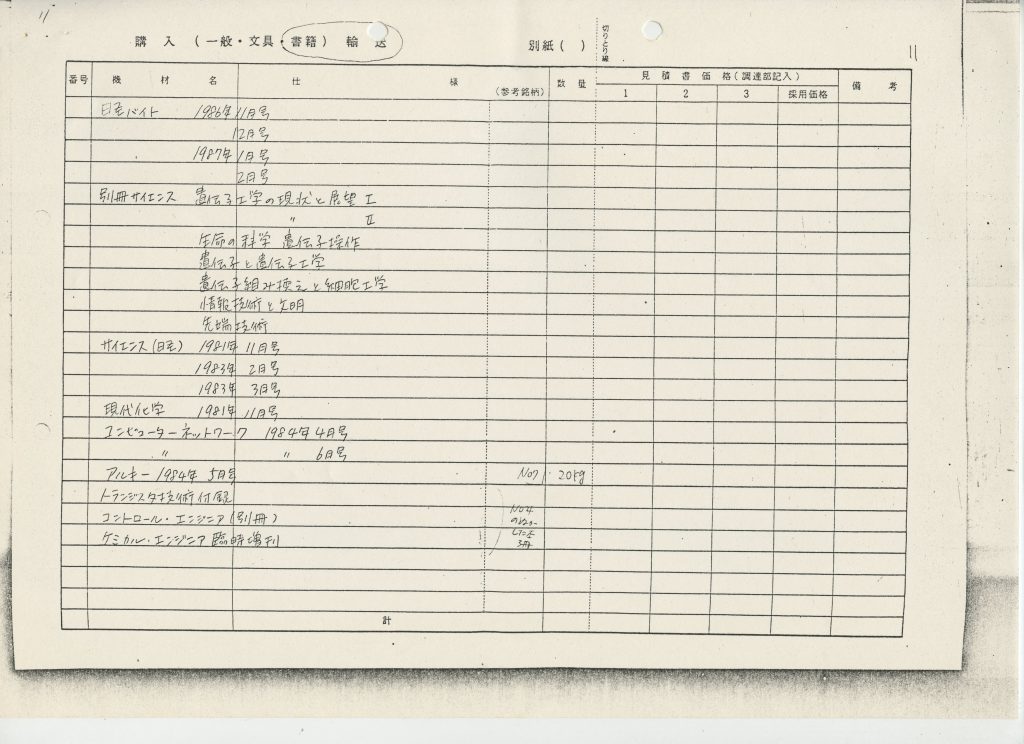 11
購入(一般・文具・書籍)輸送 別紙( ) 切りとり線 11
番号 機材名 仕様 (参考銘柄) 数量 見積書価格(調達部記入) 備考
1 2 3 採用価格
日経バイト 1986年 11月号
12月号
1987年 1月号
2月号
別冊サイエンス 遺伝子工学の現状と展望 I
〃 II
生命の科学 遺伝子操作
遺伝子と遺伝子工学
遺伝子組み換えと細胞工学
情報技術と文明
先端技術
サイエンス(日経) 1981年 11月号
1983年 2月号
1983年 3月号
現代化学 1981年 11月号
コンピューターネットワーク 1984年 4月号
〃 〃 6月号
アルキー 1984年 5月号 No7 20kg
トランジスタ技術付録
コントロール・エンジニア(別冊) No4
ケミカル・エンジニア臨時増刊 3冊
計